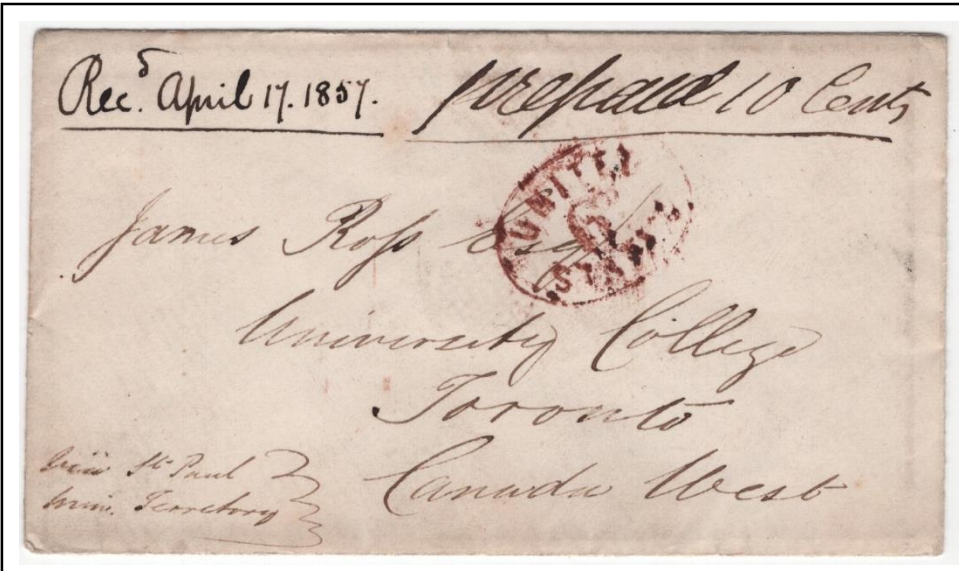 Rec.d April 17. 1857. prepaid 10 Cents
UNITED
6d
STATES
James Ross Esqr.
University College
Toronto
Canada West
Via St Paul
Minn. Territory